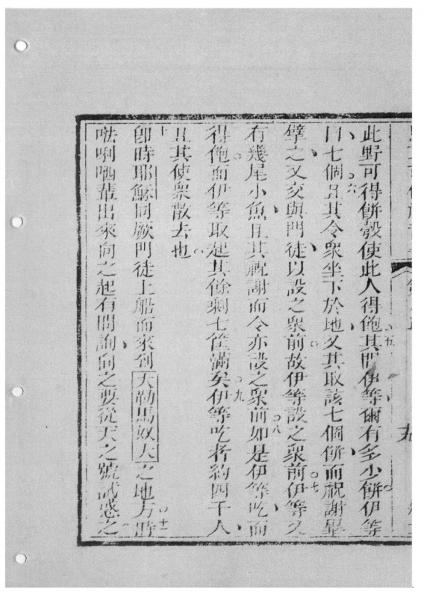 此野可得餅彀使此人得飽其問伊等爾有多少餅伊等
曰七個且其令衆坐下於地又其取該七個餅而祝謝畢
擘之又交與門徒以設之衆前故伊等設之衆前伊等又
有幾尾小魚且其祝謝而令亦設之衆前如是伊等吃而
得飽而伊等取起其餘剩七筐滿矣伊等吃者約四千人
且其使衆散去也
卽時耶穌同厥門徒上船而來到大勒馬奴大之地方時
唎哂輩出來向之起有問詢向之要從天之號試惑之